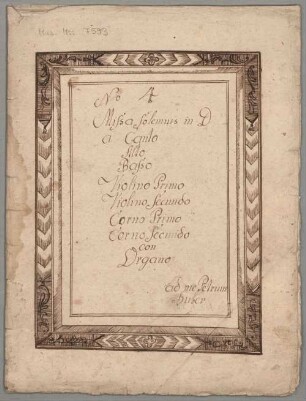 Mus. ms. 7593
No 4
Missa Solemnis in D
a Canto
Alto
Basso
Violino Primo
Violino Secundo
Corno Primo
Corno Secundo
con
Organo
Ad me Petrum
Huber